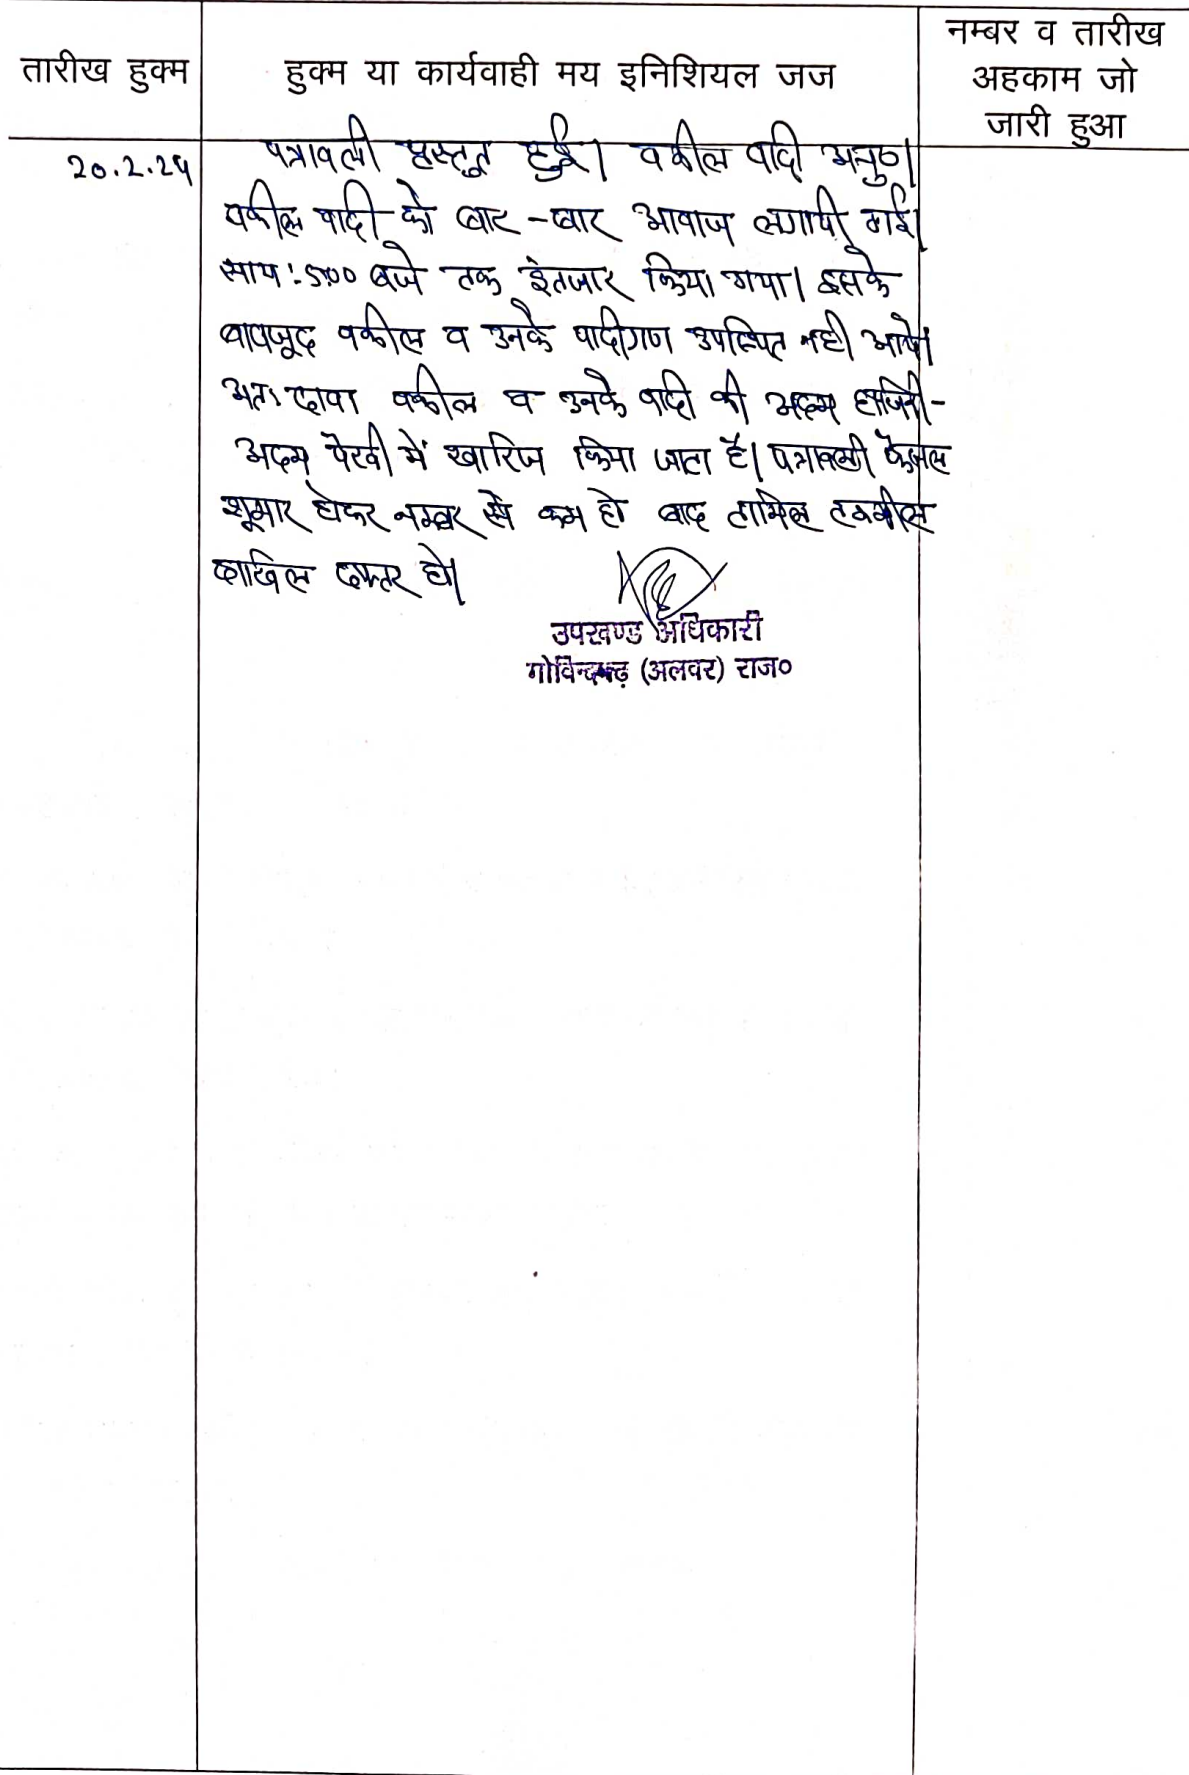 तारीख हुक्म
हुक्म या कार्यवाही मय इनिशियल जज
नम्बर व तारीख
अहकाम जो
जारी हुआ
20.2.25
पत्रावली प्रस्तुत हुई। वकील वादी अनु०।
वकील वादी को बार-बार आवाज लगायी गई।
साय: 5:00 बजे तक इंतजार किया गया। इसके
बावजूद वकील व उनके वादीगण उपस्थित नही आये।
अतः दावा वकील व उनके वादी की अदम हाजिरी-
अदम पैरवी में खारिज किया जाता है। पत्रावली फैसल
शूमार होकर नम्बर से कम हो बाद तामिल तकमील
दाखिल दफ्तर हो।
उपखण्ड अधिकारी
गोविन्दगढ़ (अलवर) राज०